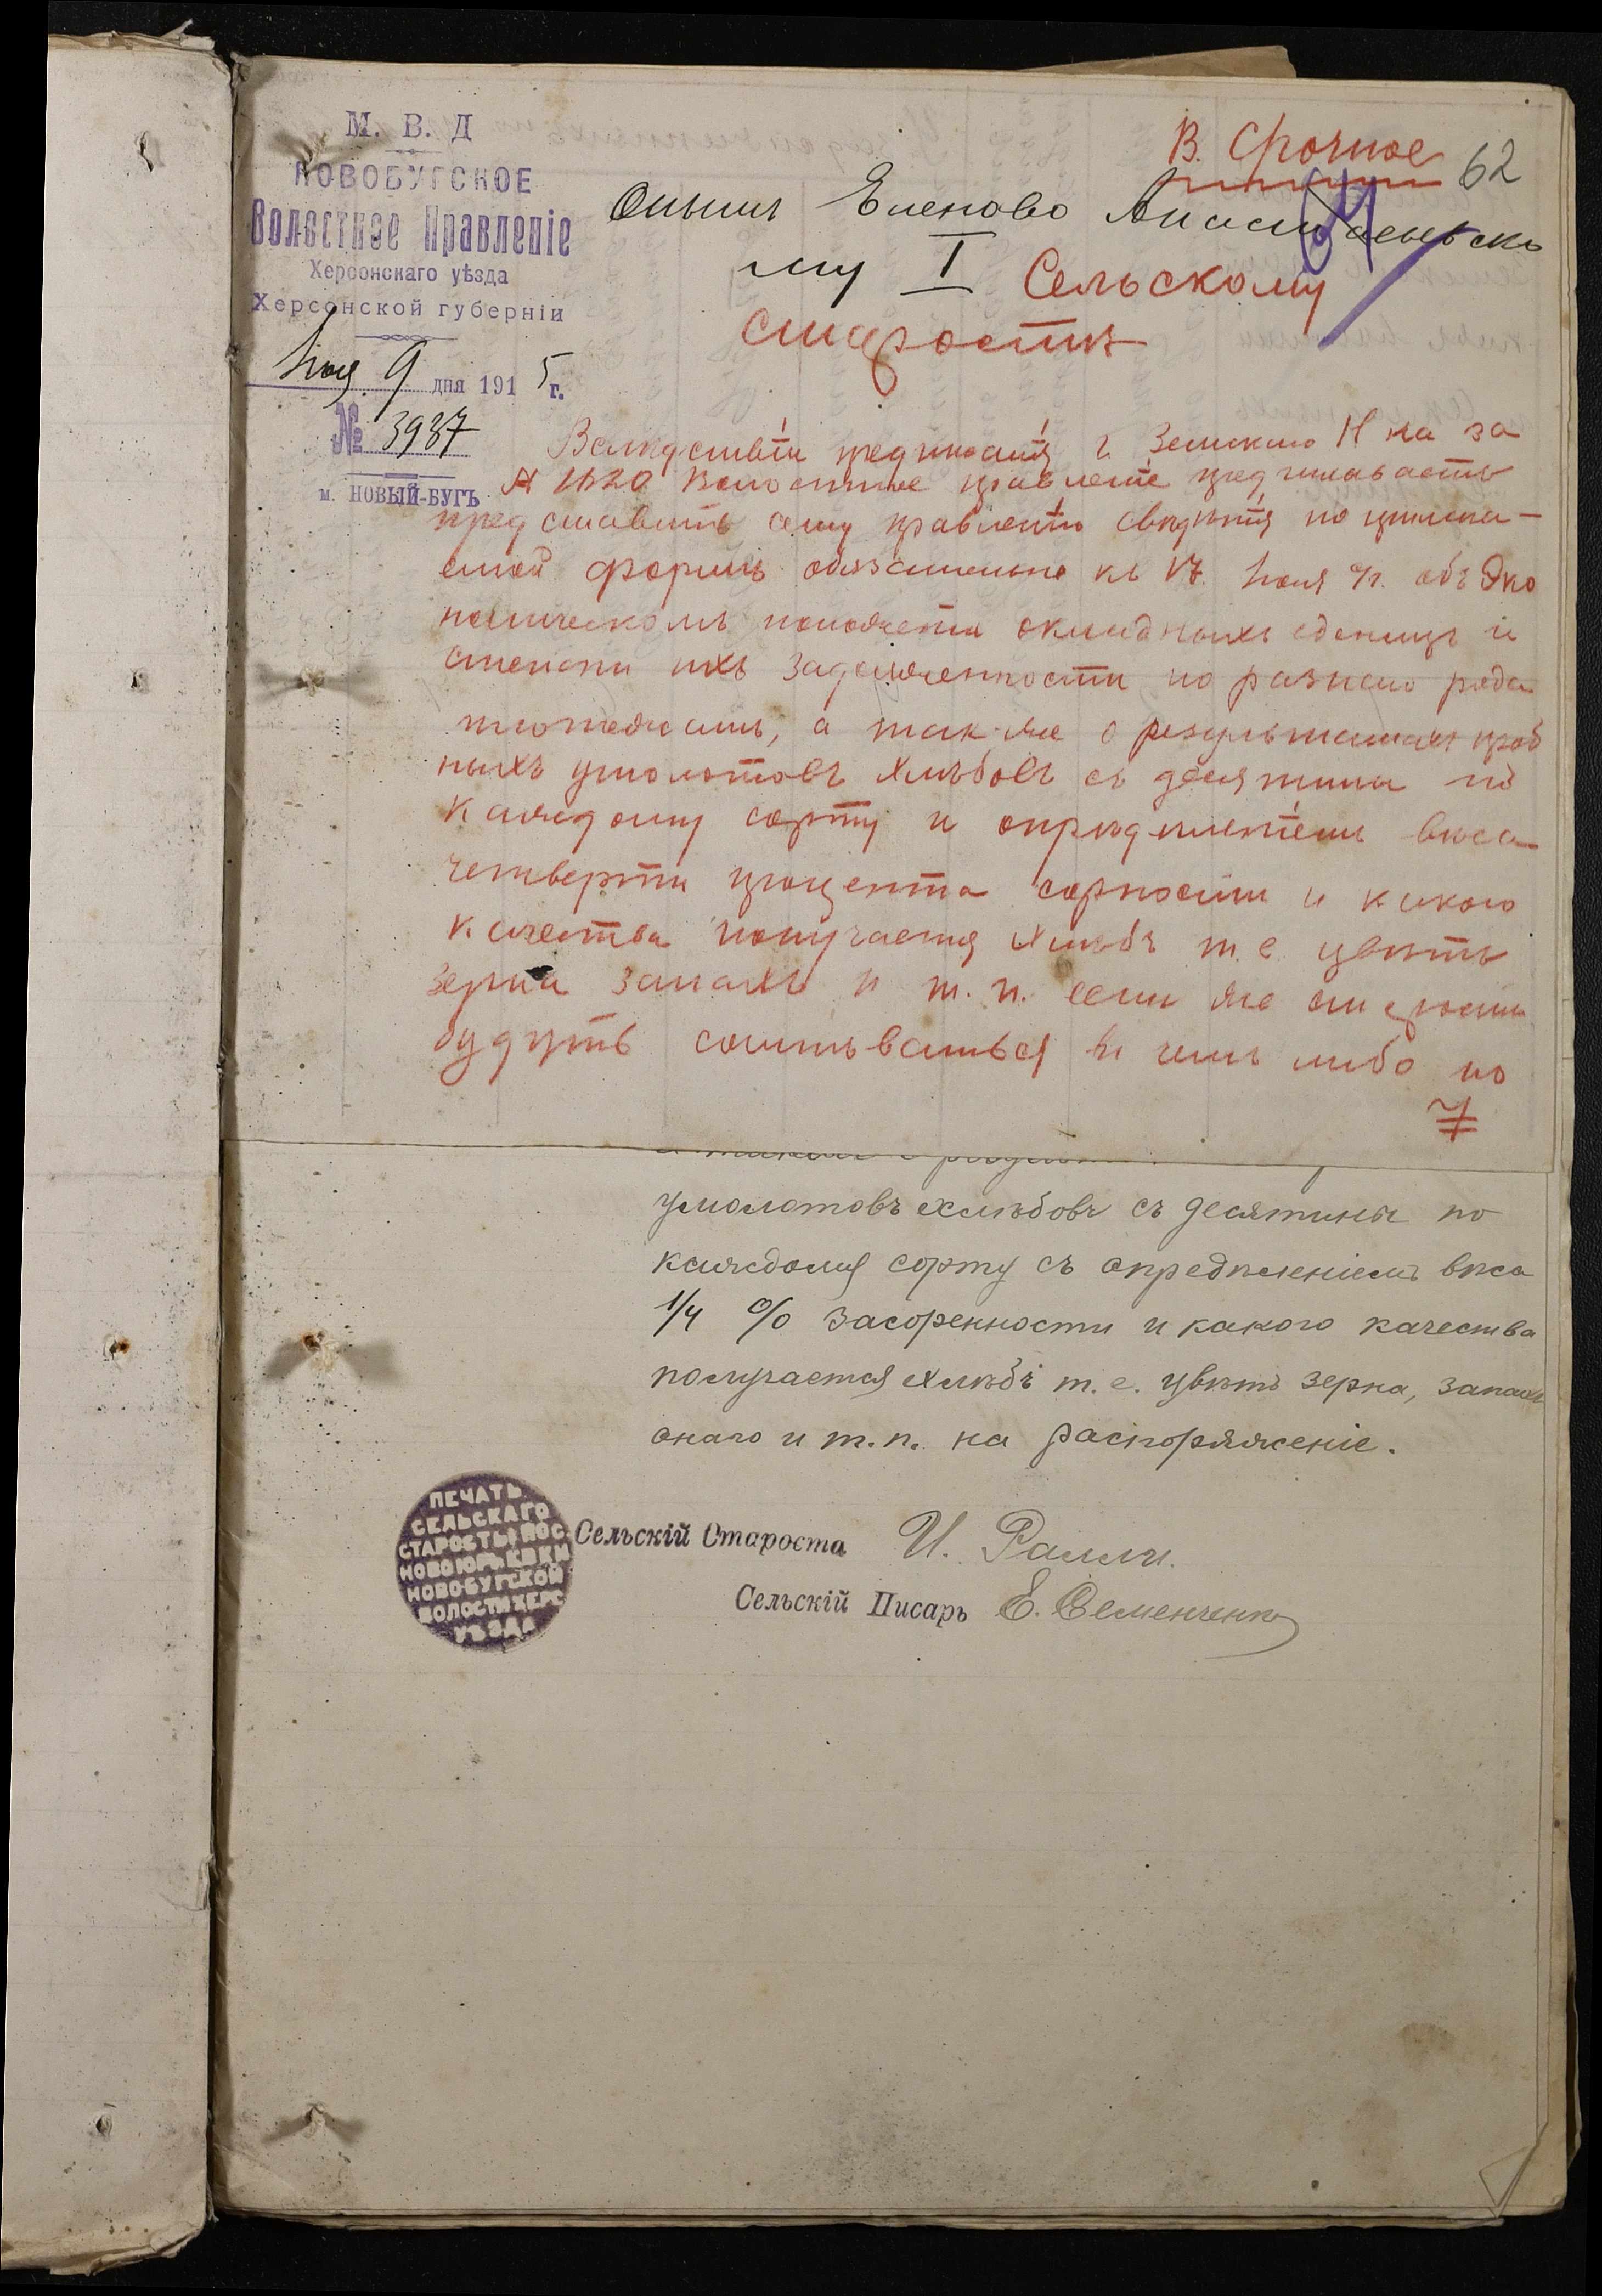 М. В. Д
НОВОБУГСКОЕ
Волостное Правленіе
Херсонскаго уѣзда
Херсонской губерніи
Іюля 9 дня 1915 г.
№ 3987
м. НОВЫЙ-БУГЪ
В. Срочное
62
Еленово
му I Сельскому
Старостѣ
Вслѣдствіи предписанія г. Земскаго Н ка за
№ 1620 Волостное правленіе предписываетъ
представить сему правленію свѣдѣнія по
формѣ обязательно къ 17 Іюля с/г. объ Эко
номическомъ положеніи окладныхъ единицъ и
степени ихъ задолженности по разнаго рода
платежамъ, а так-же о результатахъ проб
ныхъ умолотовъ хлѣбовъ съ десятины по
каждому сорту и опредѣленіемъ вѣса
четверти процента сорности и какого
качества получается хлѣбъ т.е. цвѣтъ
зерна запахъ и т. п. если же
будутъ въ чемъ либо по
умолотовъ хлѣбовъ съ десятины по
каждому сорту съ опредѣленіемъ вѣса
1/4 % засоренности и какого качества
получается хлѣбъ т.е. цвѣтъ зерна, запахъ
онаго и т.п. на распоряженіе.
ПЕЧАТЬ
СЕЛЬСКАГО
СТАРОСТЫ ПОС
НОВОЮРЬЕВКИ
НОВОБУГСКОЙ
ВОЛОСТИ ХЕРС
УѢЗДА
Сельскій Староста И. Ралли.
Сельскій Писарь Е. Семенченко